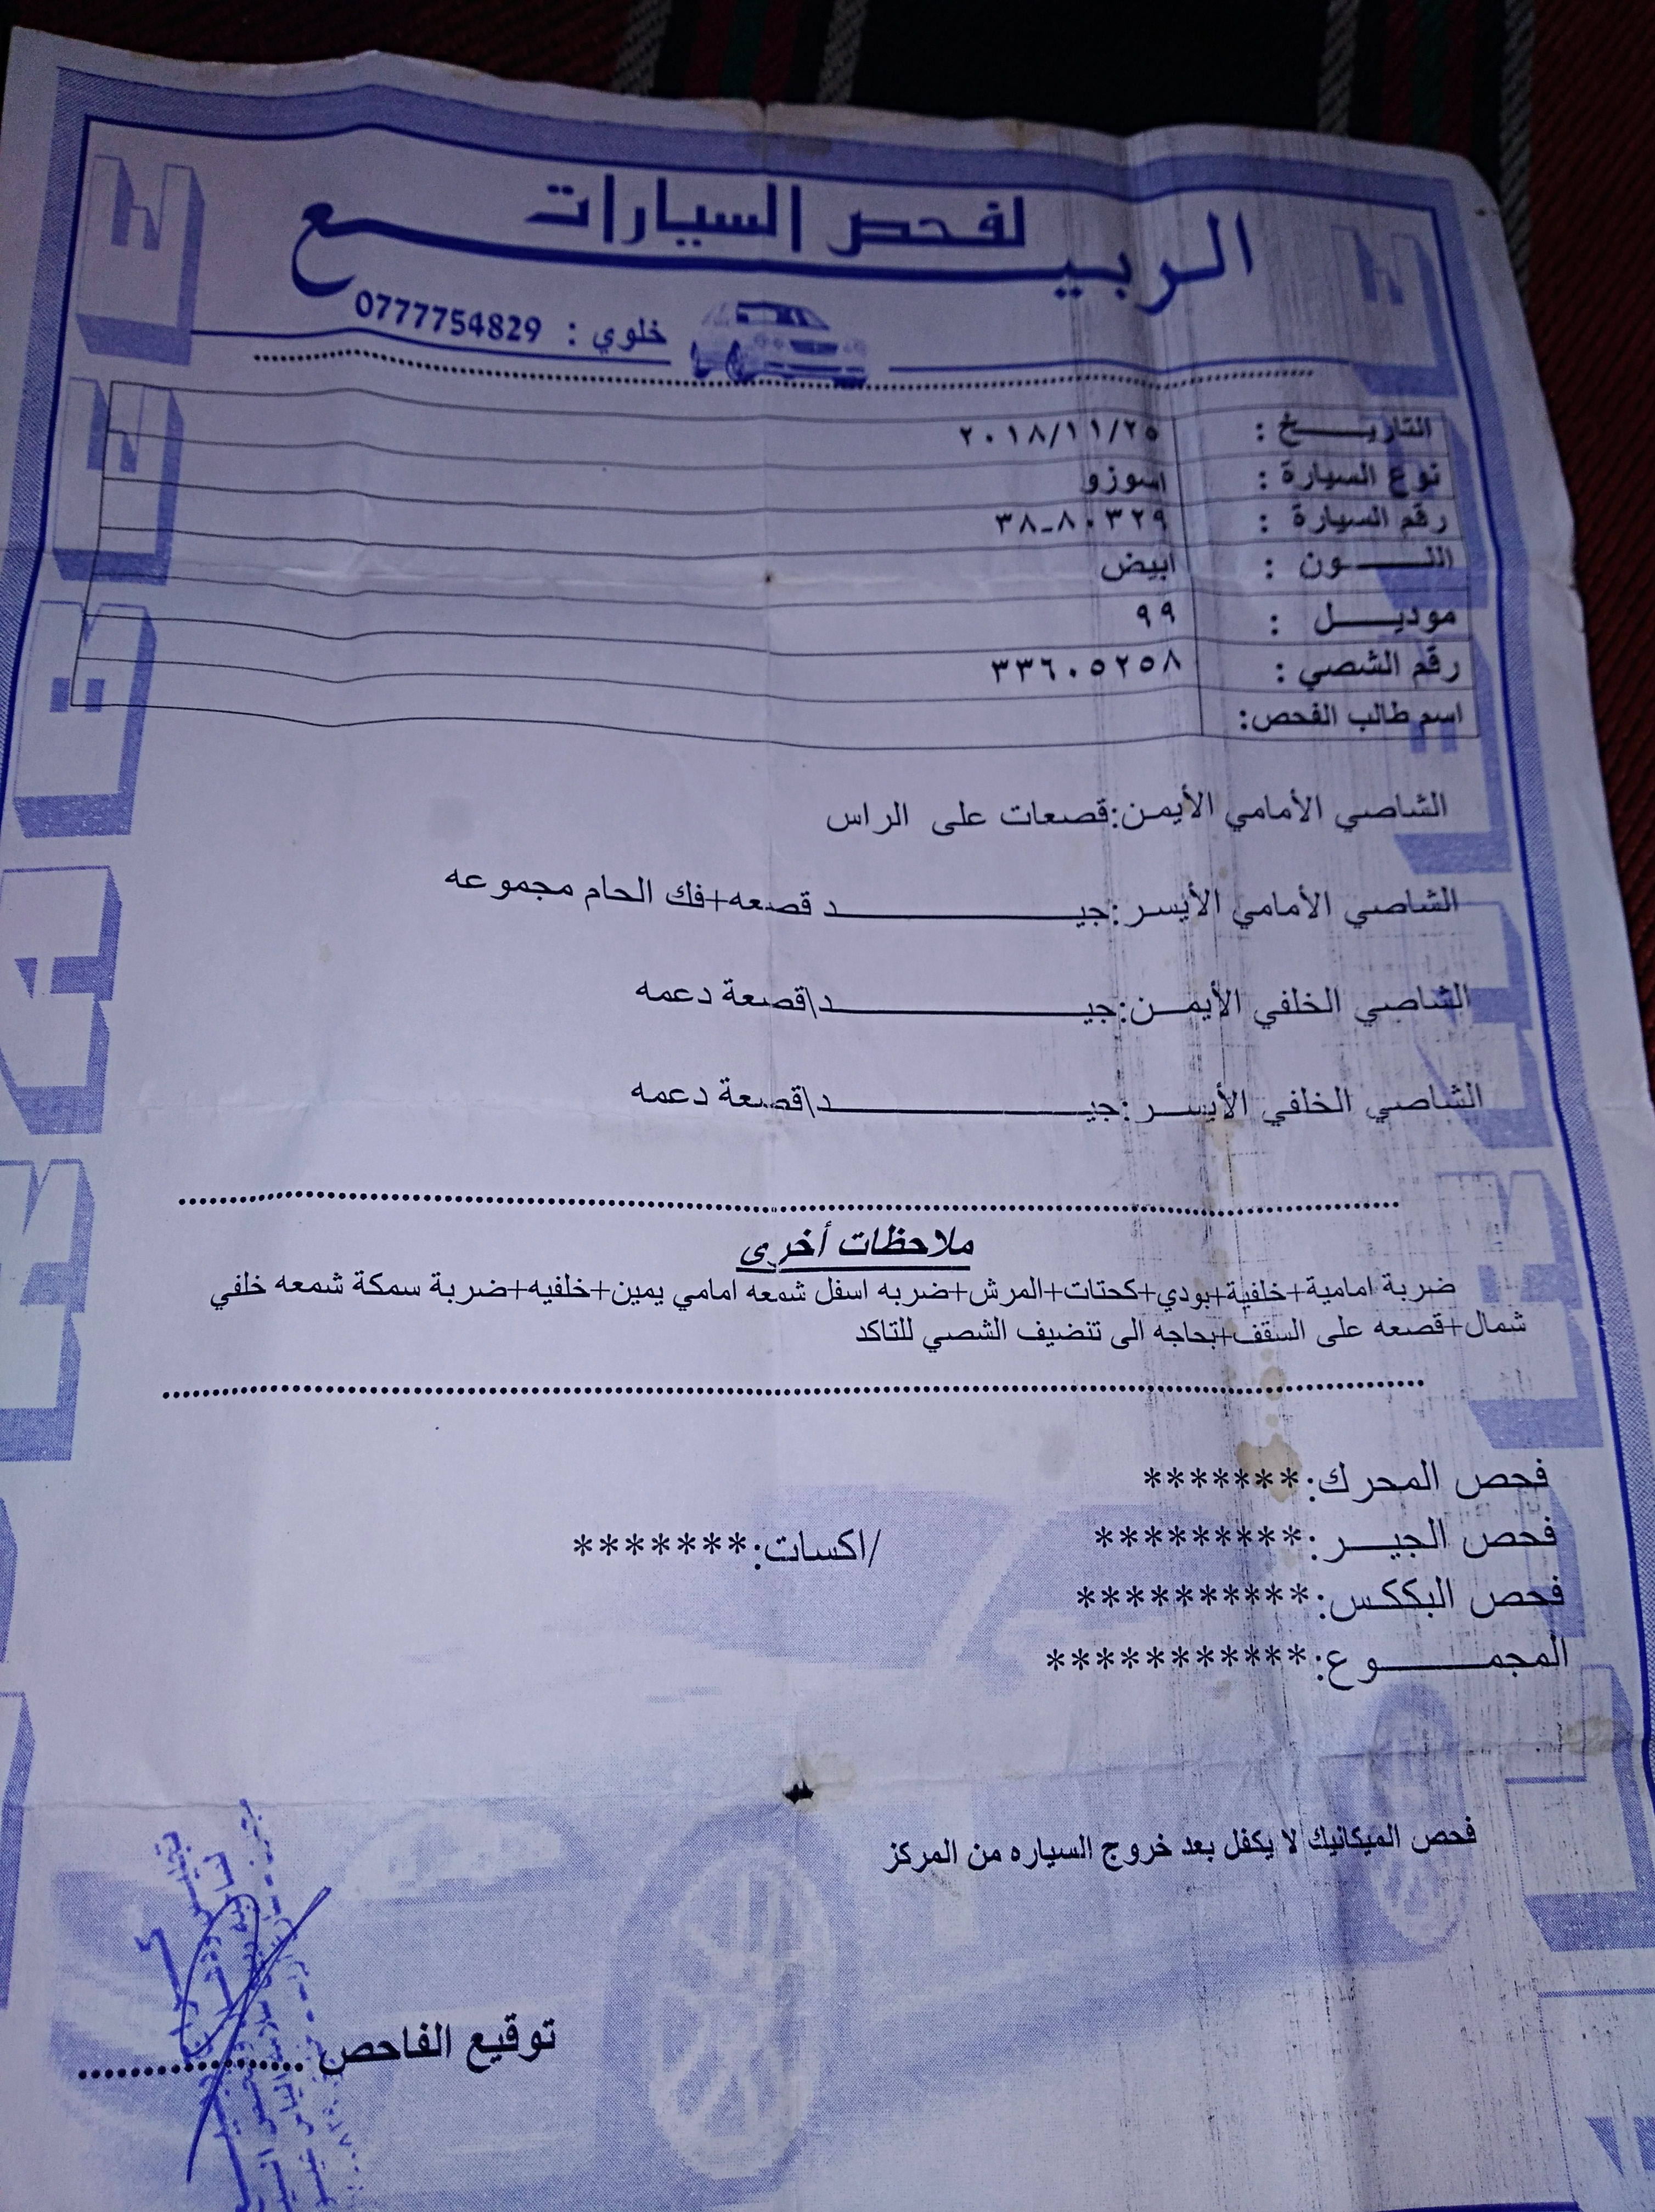 الربيع
لفحص السيارات
خلوي : 0777754829
التاريخ : ٢٠١٨/١١/٢٥
نوع السيارة : اسوزو
رقم السيارة : ٣٨-٨٠٣٢٩
اللون : ابيض
موديل : ٩٩
رقم الشصي : ٣٣٦٠٥٢٥٨
اسم طالب الفحص:
الشاصي الأمامي الأيمن:قصعات على الراس
الشاصي الأمامي الأيسر:جيد قصعه+فك الحام مجموعه
الشاصي الخلفي الأيمن:جيد\قصعة دعمه
الشاصي الخلفي الأيسر:جيد\قصعة دعمه
ملاحظات أخرى
ضربة امامية+خلفية+بودي+كحتات+المرش+ضربه اسفل شمعه امامي يمين+خلفيه+ضربة سمكة شمعه خلفي
شمال+قصعه على السقف+بحاجه الى تنضيف الشصي للتاكد
فحص المحرك:*******
فحص الجير:********* /اكسات:*******
فحص البككس:**********
المجموع:***********
فحص الميكانيك لا يكفل بعد خروج السياره من المركز
توقيع الفاحص